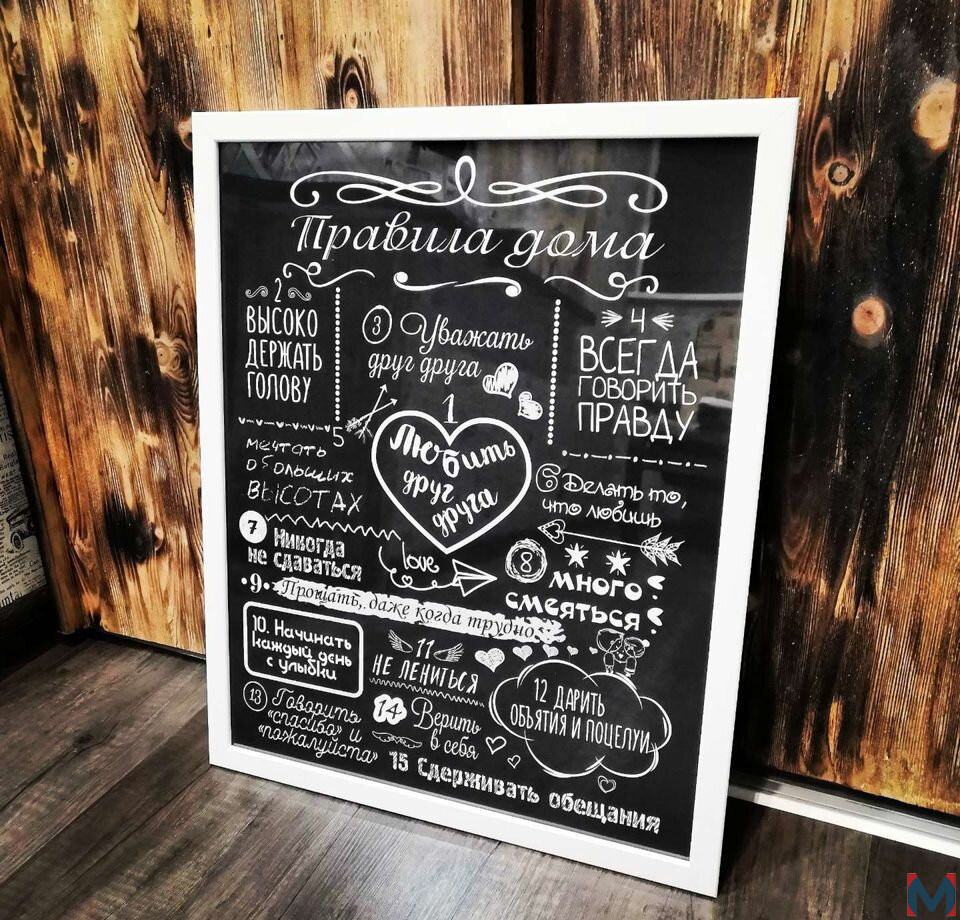 Правила дома
2
ВЫСОКО
ДЕРЖАТЬ
ГОЛОВУ
3 Уважать
друг друга
4
ВСЕГДА
ГОВОРИТЬ
ПРАВДУ
1
Любить
друг
друга
5
мечтать
о больших
ВЫСОТАХ
6 Делать то,
что любишь
7 Никогда
не сдаваться
love
8 МНОГО
СМЕЯТЬСЯ
9. Прощать, даже когда трудно
10. Начинать
каждый день
с улыбки
11
НЕ ЛЕНИТЬСЯ
12 ДАРИТЬ
ОБЪЯТИЯ И ПОЦЕЛУИ
13 Говорить
«спасибо» и
«пожалуйста»
14 Верить
в себя
15 Сдерживать обещания
M